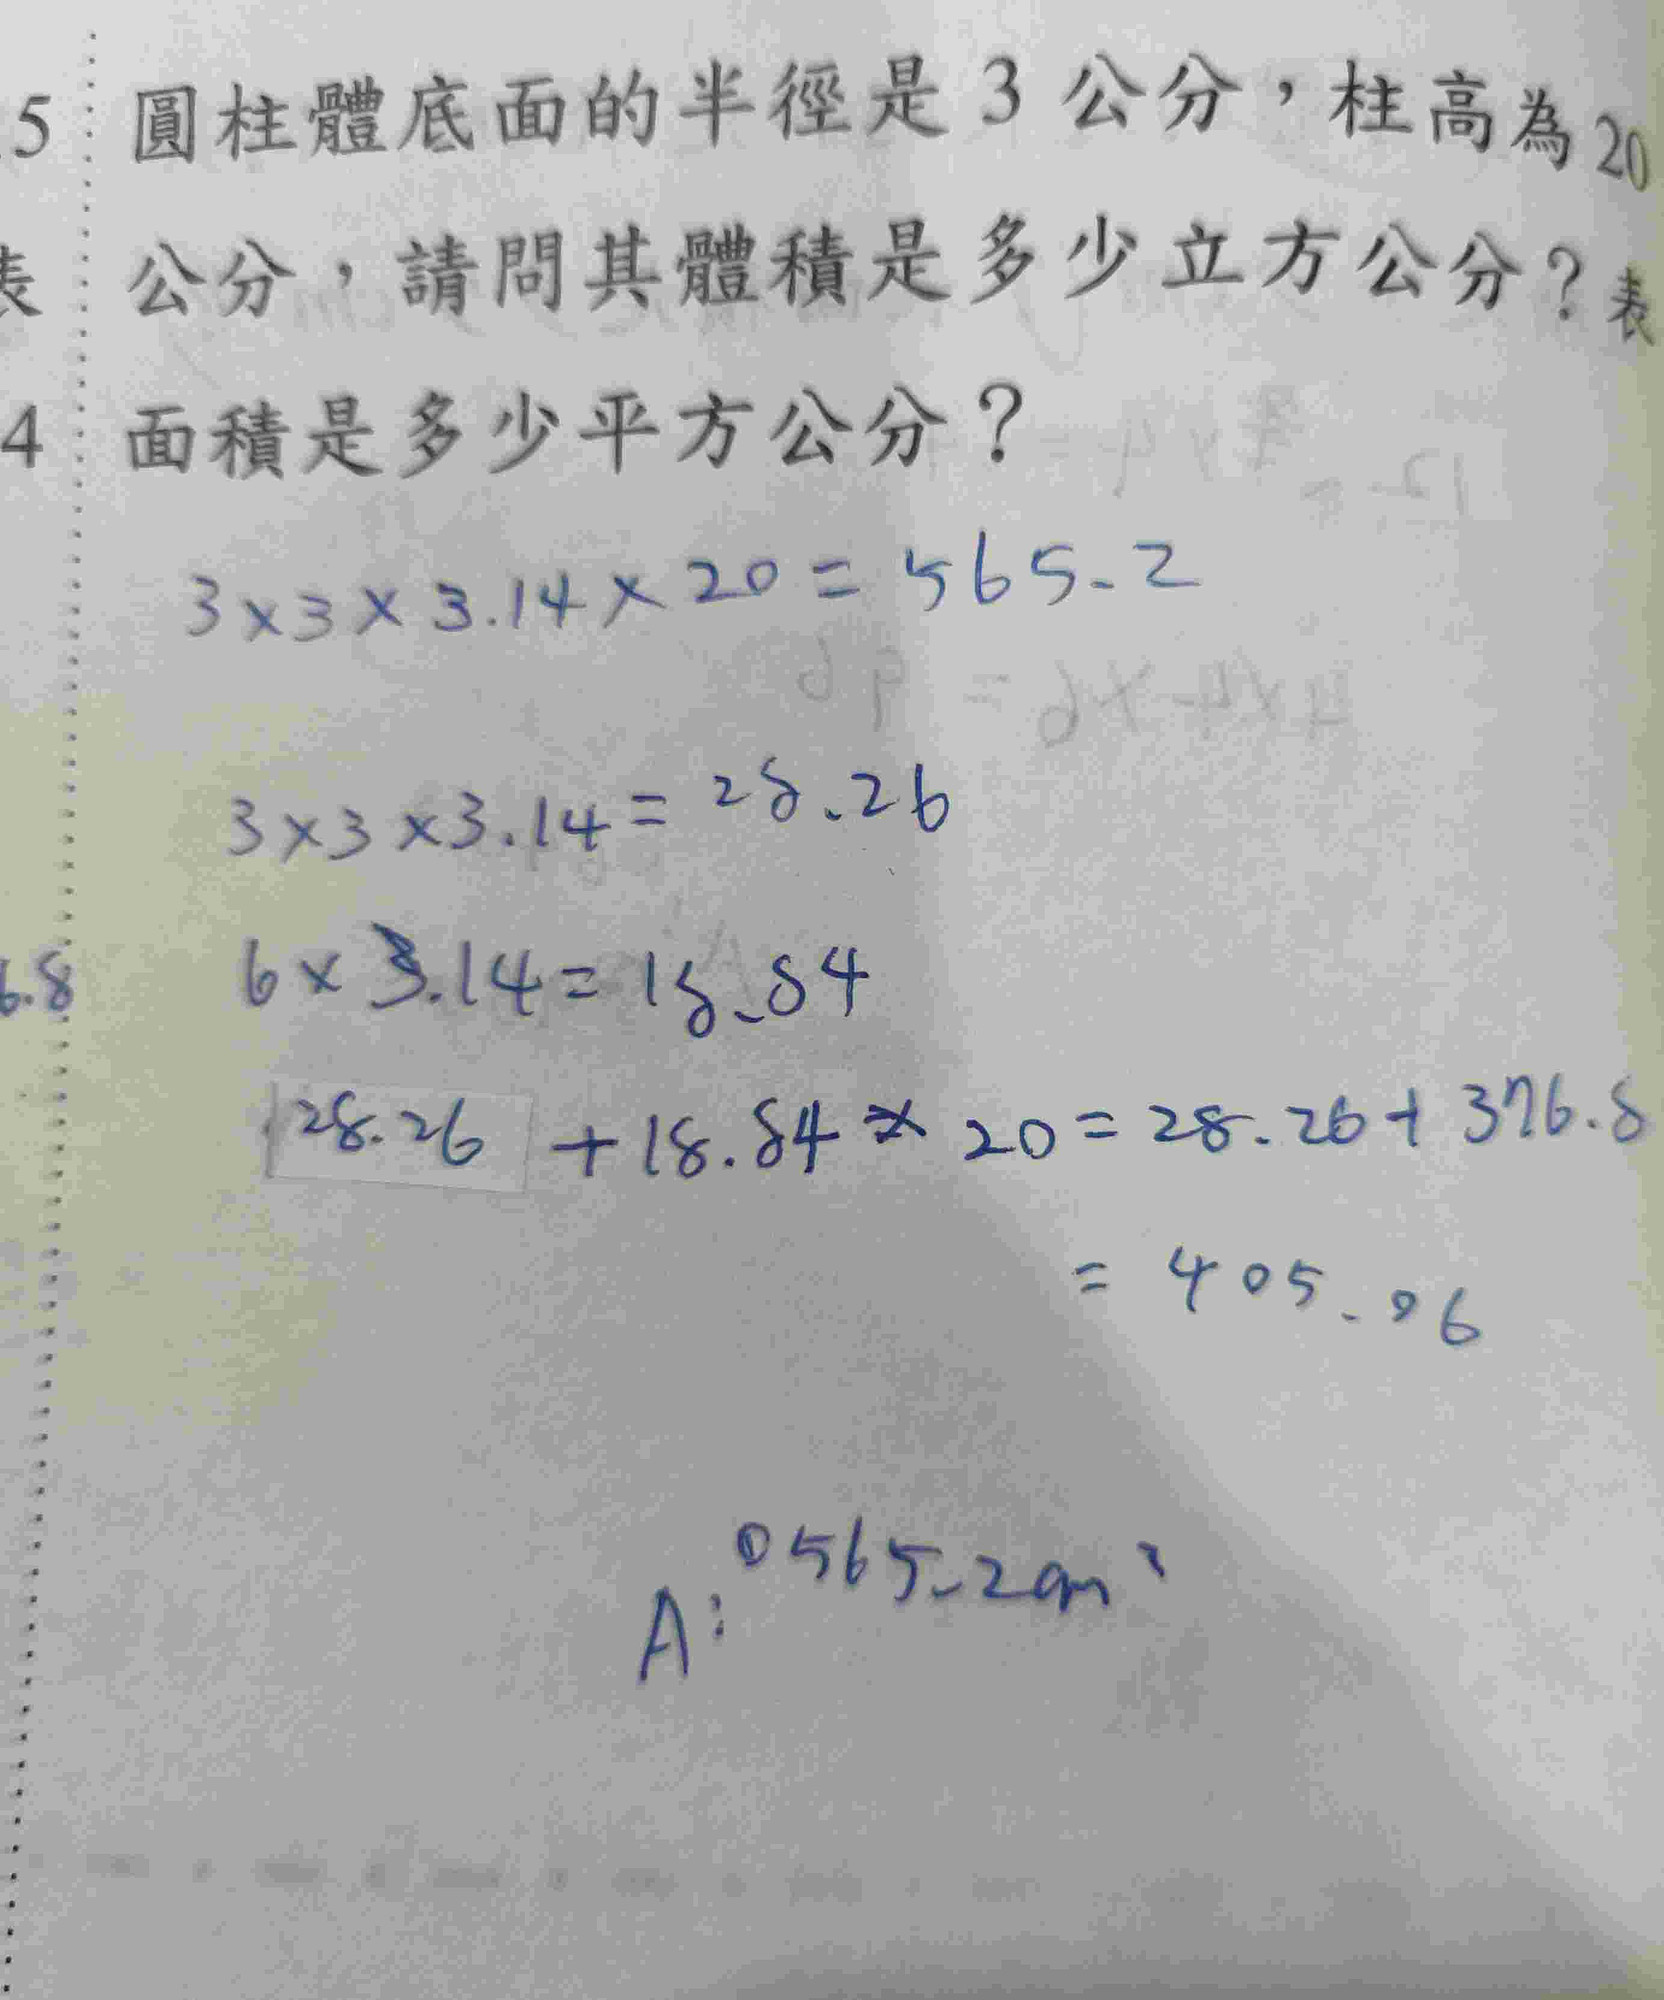 .5 圓柱體底面的半徑是 3 公分，柱高為 20
表 公分，請問其體積是多少立方公分？表
4 面積是多少平方公分？
3×3×3.14×20=565.2
3×3×3.14=28.26
6.8 6×3.14=18.84
28.26+18.84×20=28.26+376.8
=405.06
A:①565.2cm³